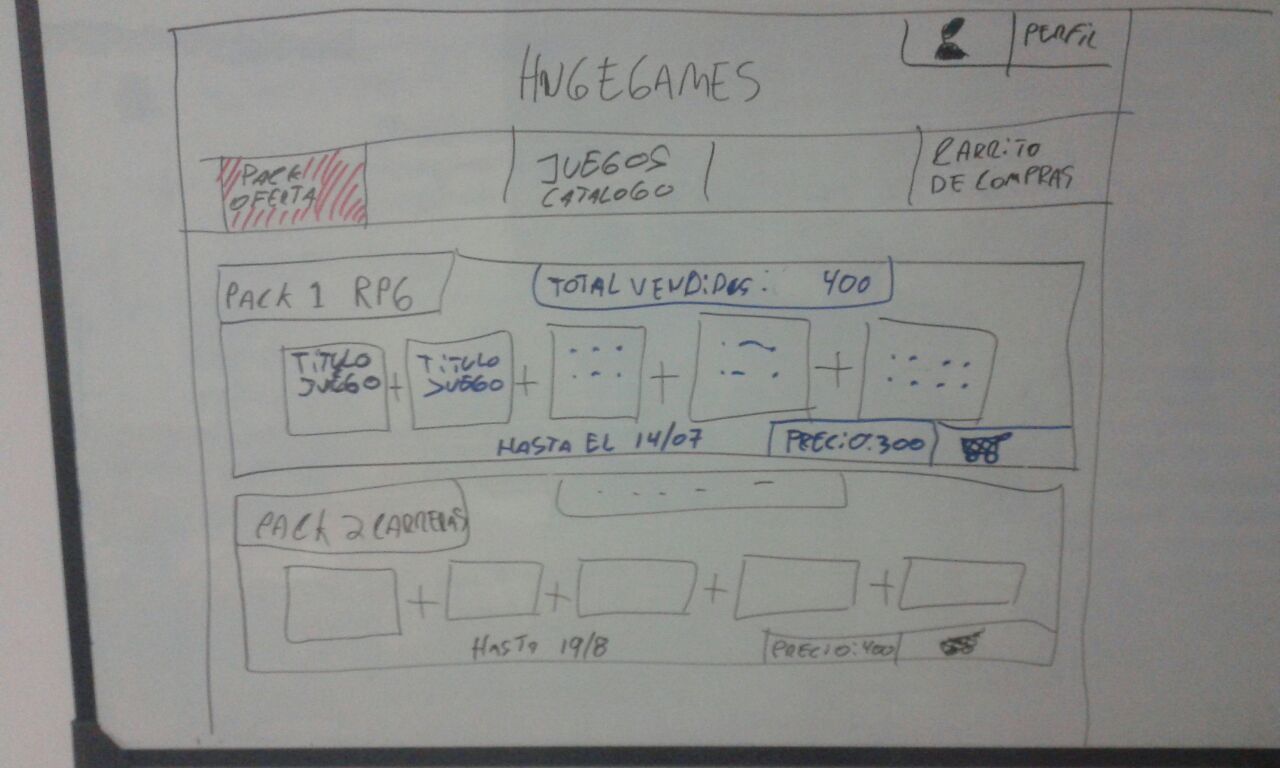 PERFIL
HNGEGAMES
PACK
OFERTA
JUEGOS
CATALOGO
CARRITO
DE COMPRAS
PACK 1 RPG
TOTAL VENDIDOS: 400
TITULO
JUEGO
+
TITULO
JUEGO
+ + +
HASTA EL 14/07
PRECIO:300
PACK 2 CARRERAS
+ + + +
HASTA 19/8
PRECIO:400